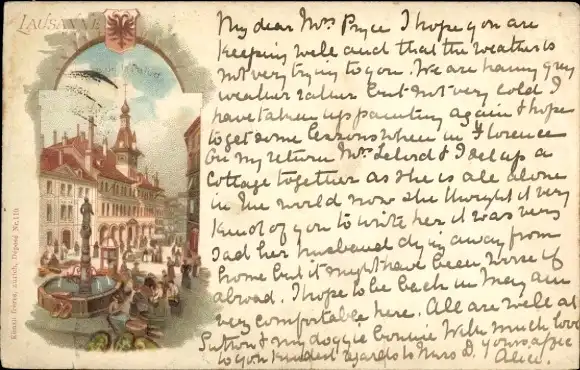 LAUSANNE
My dear Mrs Pryce I hope you are
keeping well and that the weather is
not very trying to you. We are having grey
weather rather but not very cold I
have taken up painting again & hope
to get some lessons when in Florence
On my return Mrs & I set up a
cottage together as she is all alone
in the world now she thought it very
kind of you to write her it was very
sad her husband dying away from
home but it might have been worse if
abroad. I hope to be back in May am
very comfortable here. All are well at
Sutton & my doggie With much love
to you kindest regards to yours affec
Alice.
Künzli frères, Zürich, Déposé Nr.